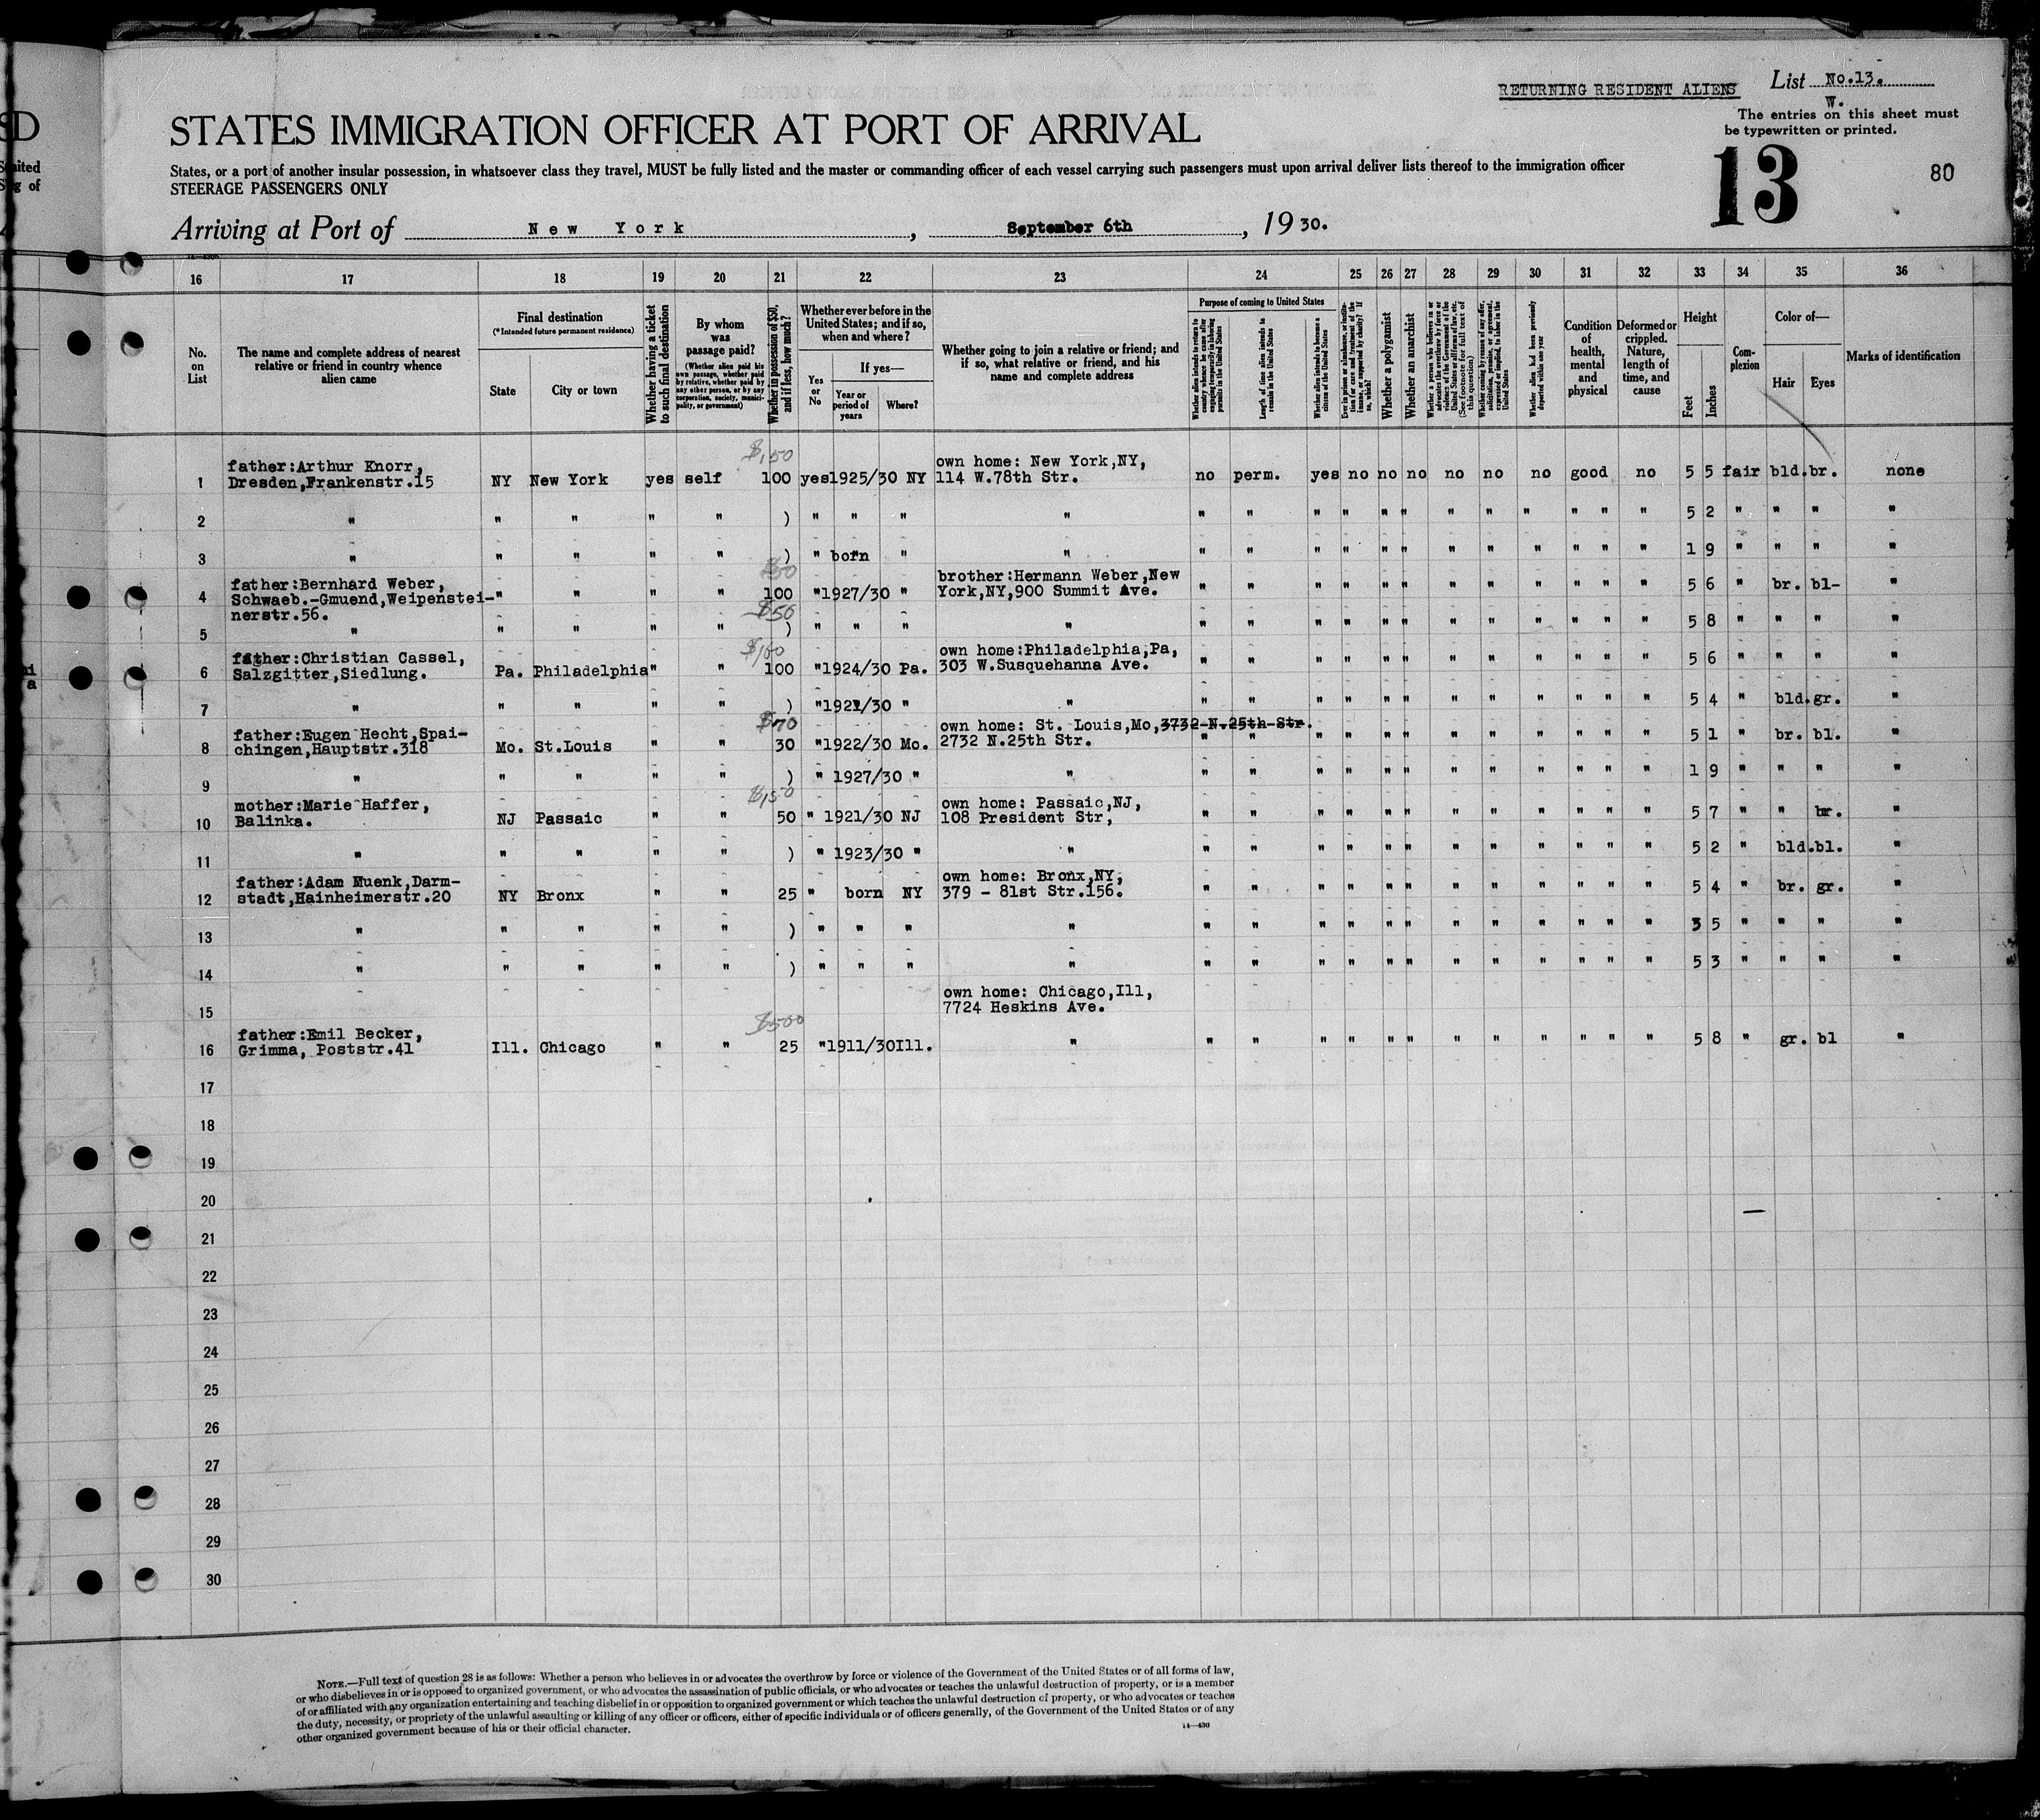 RETURNING RESIDENT ALIENS
List No.13.
W.
The entries on this sheet must
be typewritten or printed.
STATES IMMIGRATION OFFICER AT PORT OF ARRIVAL
13
80
States, or a port of another insular possession, in whatsoever class they travel, MUST be fully listed and the master or commanding officer of each vessel carrying such passengers must upon arrival deliver lists thereof to the immigration officer
STEERAGE PASSENGERS ONLY
Arriving at Port of New York, September 6th, 1930.
16 17 18 19 20 21 22 23 24 25 26 27 28 29 30 31 32 33 34 35 36
No. on List
The name and complete address of nearest relative or friend in country whence alien came
Final destination
(*Intended future permanent residence)
State
City or town
Whether having a ticket to such final destination
By whom was passage paid?
(Whether alien paid his own passage, whether paid by relative, whether paid by any other person, or by any corporation, society, municipality, or government)
Whether in possession of $50, and if less, how much?
Whether ever before in the United States; and if so, when and where?
Yes or No
If yes—
Year or period of years
Where?
Whether going to join a relative or friend; and if so, what relative or friend, and his name and complete address
Purpose of coming to United States
Length of time alien intends to remain in the United States
Whether alien intends to become a citizen of the United States
Whether a polygamist
Whether an anarchist
Whether alien had been previously deported within one year
Condition of health, mental and physical
Deformed or crippled. Nature, length of time, and cause
Height
Feet
Inches
Complexion
Color of—
Hair
Eyes
Marks of identification
$150
father:Arthur Knorr, own home: New York,NY,
1 Dresden,Frankenstr.15 NY New York yes self 100 yes 1925/30 NY 114 W.78th Str. no perm. yes no no no no no no good no 5 5 fair bld. br. none
2 " " " " " ) " " " " " " " " " " " " " " " " 5 2 " " " "
3 " " " " " ) " born " " " " " " " " " " " " " " 1 9 " " " "
$50
father:Bernhard Weber, brother:Hermann Weber,New
4 Schwaeb.-Gmuend,Weipenstei- " " " " 100 " 1927/30 " York,NY,900 Summit Ave. " " " " " " " " " " " " 5 6 " br. bl- "
nerstr.56. $50
5 " " " " " ) " " " " " " " " " " " " " " " " 5 8 " " " "
$100
father:Christian Cassel, own home:Philadelphia,Pa,
6 Salzgitter,Siedlung. Pa. Philadelphia " " 100 " 1924/30 Pa. 303 W.Susquehanna Ave. " " " " " " " " " " " " 5 6 " " " "
7 " " " " " ) " 1921/30 " " " " " " " " " " " " " " 5 4 " bld. gr. "
$70
father:Eugen Hecht,Spai- own home: St. Louis,Mo,3732 N.25th Str.
8 chingen,Hauptstr.318 Mo. St.Louis " " 30 " 1922/30 Mo. 2732 N.25th Str. " " " " " " " " " " " " 5 1 " br. bl. "
9 " " " " " ) " 1927/30 " " " " " " " " " " " " " " 1 9 " " " "
$150
mother:Marie Haffer, own home: Passaic,NJ,
10 Balinka. NJ Passaic " " 50 " 1921/30 NJ 108 President Str, " " " " " " " " " " " " 5 7 " " br. "
11 " " " " " ) " 1923/30 " " " " " " " " " " " " " " 5 2 " bld. bl. "
father:Adam Muenk,Darm- own home: Bronx,NY,
12 stadt,Hainheimerstr.20 NY Bronx " " 25 " born NY 379 - 81st Str.156. " " " " " " " " " " " " 5 4 " br. gr. "
13 " " " " " ) " " " " " " " " " " " " " " " " 3 5 " " " "
14 " " " " " ) " " " " " " " " " " " " " " " " 5 3 " " " "
own home: Chicago,Ill,
15 7724 Heskins Ave.
$500
father:Emil Becker,
16 Grimma, Poststr.41 Ill. Chicago " " 25 " 1911/30 Ill. " " " " " " " " " " " " " 5 8 " gr. bl "
17
18
19
20
21
22
23
24
25
26
27
28
29
30
NOTE.—Full text of question 28 is as follows: Whether a person who believes in or advocates the overthrow by force or violence of the Government of the United States or of all forms of law,
or who disbelieves in or is opposed to organized government, or who advocates the assassination of public officials, or who advocates or teaches the unlawful destruction of property, or is a member
of or affiliated with any organization entertaining and teaching disbelief in or opposition to organized government or which teaches the unlawful destruction of property, or who advocates or teaches
the duty, necessity, or propriety of the unlawful assaulting or killing of any officer or officers, either of specific individuals or of officers generally, of the Government of the United States or of any
other organized government because of his or their official character.
14—430